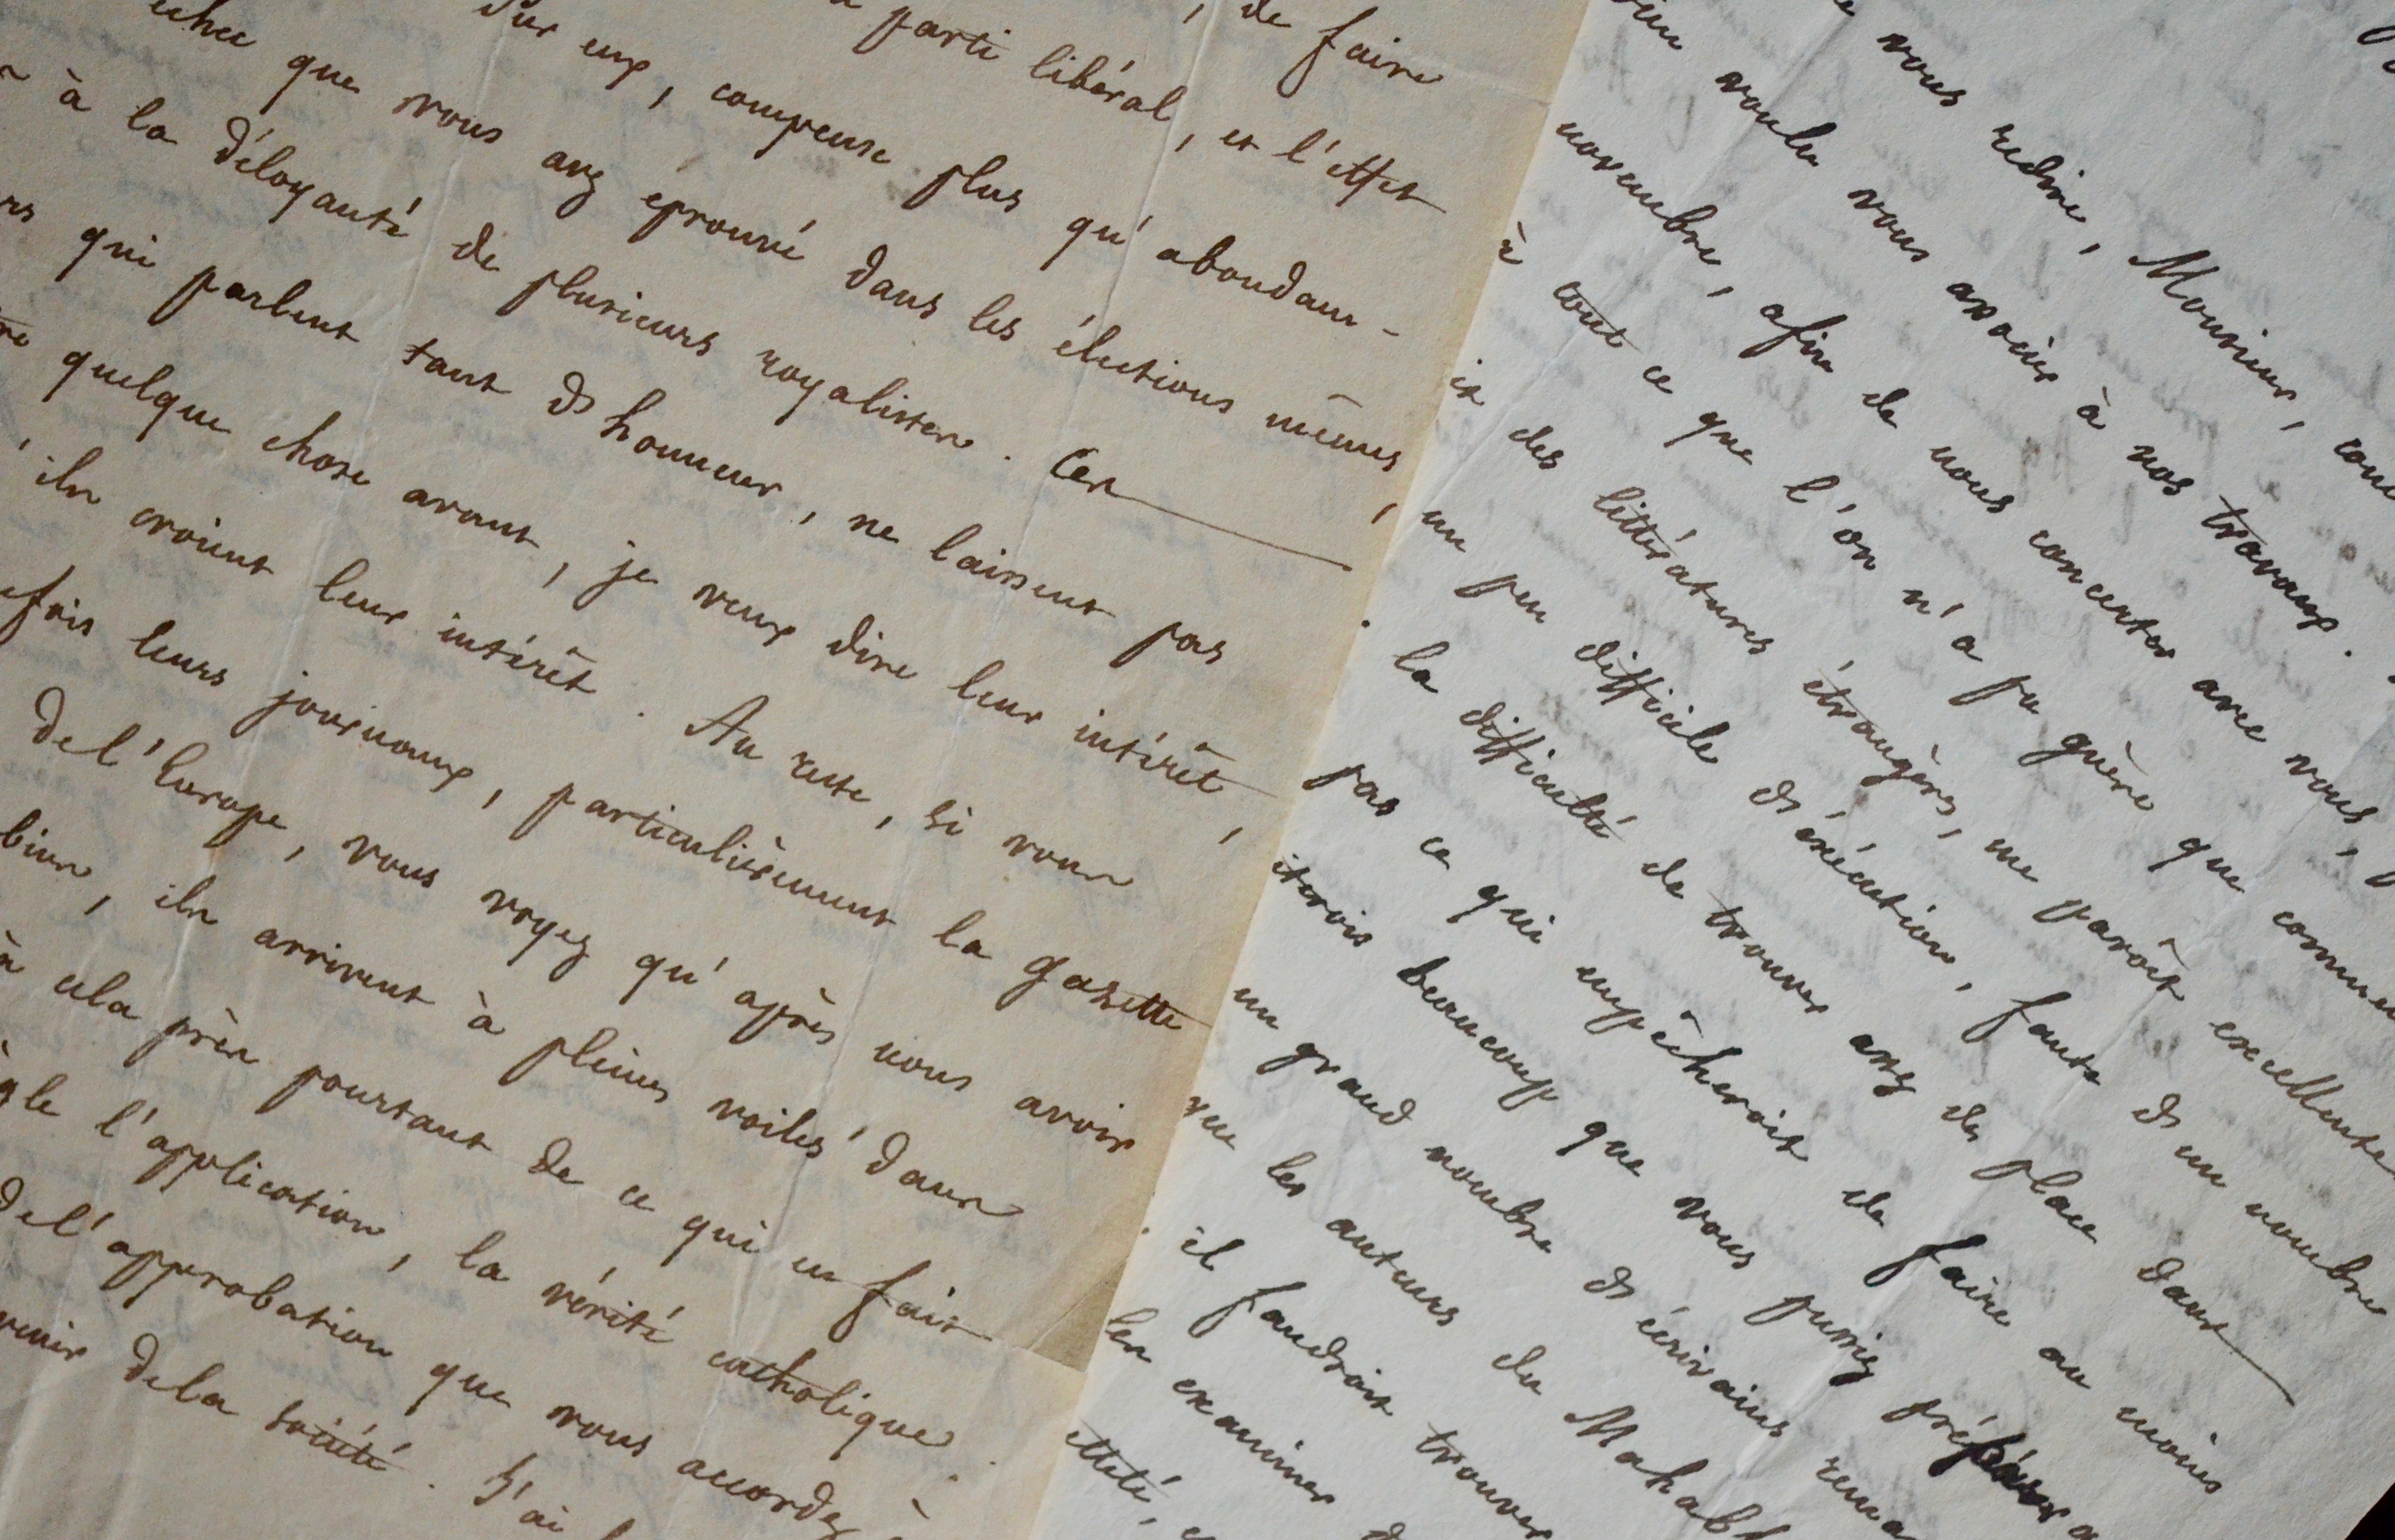 , de faire
parti libéral, et l'effet
sur eux, compense plus qu'abondam-
échec que vous avez éprouvé dans les élections mêmes,
à la déloyauté de plusieurs royalistes. Ces
qui parlent tant d'honneur, ne laissent pas
quelque chose avant, je veux dire leur intérêt,
ils croient leur intérêt. Au reste, si vous
leurs journaux, particulièrement la gazette
de l'Europe, vous voyez qu'après nous avoir
bien, ils arrivent à pleines voiles dans
à cela près pourtant de ce qui en fait
l'application, la vérité catholique.
de l'approbation que vous accordez à
de la société. J'ai
vous redire, Monsieur,
voulu vous associer à nos travaux.
novembre, afin de nous concerter avec vous,
à tout ce que l'on n'a pu guère que
des littératures étrangères, me paroît excellente
un peu difficile d'exécution, faute d'un nombre
la difficulté de trouver assez de place dans
pas ce qui empêcheroit de faire au moins
beaucoup que vous pussiez préparer
un grand nombre d'écrivains
que les auteurs du Mahabh
il faudroit trouver
les examiner d